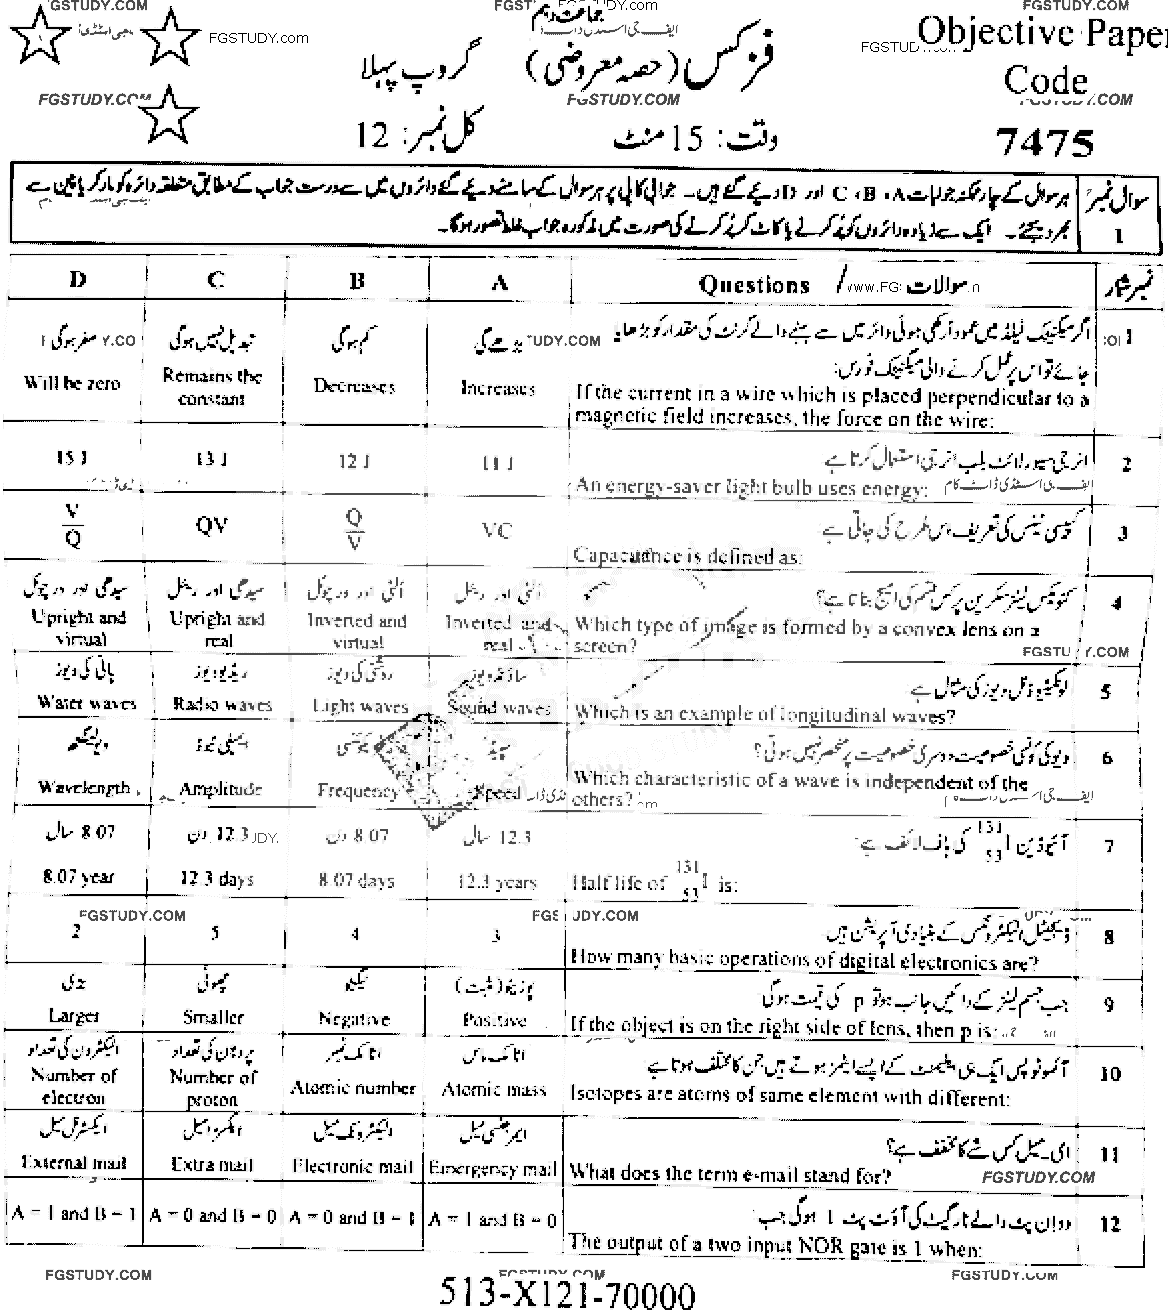 FGSTUDY.COM
FGSTUDY.com
جماعت دہم
Objective Paper
Code
7475
فزکس (حصہ معروضی)
گروپ پہلا
FGSTUDY.COM
FGSTUDY.COM
وقت: 15 منٹ
کل نمبر: 12
سوال نمبر 1
ہر سوال کے چار ممکنہ جوابات A، B، C اور D دیے گئے ہیں۔ جوابی کاپی پر ہر سوال کے سامنے دیے گئے دائروں میں سے درست جواب کے مطابق متعلقہ دائرہ کو مارکر یا پین سے
بھر دیجئے۔ ایک سے زیادہ دائروں کو پُر کرنے یا کاٹ کر پُر کرنے کی صورت میں مذکورہ جواب غلط تصور ہوگا۔
نمبر شمار
Questions / سوالات
A B C D
1
اگر میگنیٹک فیلڈ میں عموداً رکھی ہوئی وائر میں سے بہنے والے کرنٹ کی مقدار کو بڑھایا
جائے تو اس پر عمل کرنے والی میگنیٹک فورس:
If the current in a wire which is placed perpendicular to a
magnetic field increases, the force on the wire:
بڑھے گی
Increases
کم ہوگی
Decreases
تبدیل نہیں ہوگی
Remains the
constant
صفر ہوگی
Will be zero
2
انرجی سیور لائٹ بلب انرجی استعمال کرتا ہے
An energy-saver light bulb uses energy:
11 J
12 J
13 J
15 J
3
کپیسی ٹینس کی تعریف اس طرح کی جاتی ہے
Capacitance is defined as:
VC
Q
V
QV
V
Q
4
کنویکس لینز سکرین پر کس قسم کی امیج بناتا ہے؟
Which type of image is formed by a convex lens on a
screen?
الٹی اور رئیل
Inverted and
real
الٹی اور ورچوئل
Inverted and
virtual
سیدھی اور رئیل
Upright and
real
سیدھی اور ورچوئل
Upright and
virtual
FGSTUDY.COM
5
لونگیٹیوڈنل ویوز کی مثال ہے
Which is an example of longitudinal waves?
ساؤنڈ ویوز
Sound waves
روشنی کی ویوز
Light waves
ریڈیو ویوز
Radio waves
پانی کی ویوز
Water waves
6
ویو کی کونسی خصوصیت دوسری خصوصیت پر منحصر نہیں ہوتی؟
Which characteristic of a wave is independent of the
others?
سپیڈ
Speed
Frequency
ایمپلی ٹیوڈ
Amplitude
ویولینگتھ
Wavelength
7
آئیوڈین 131 53 I کی ہاف لائف ہے
Half life of 131 53 I is:
12.3 سال
12.3 years
8.07 دن
8.07 days
12.3 دن
12.3 days
8.07 سال
8.07 year
FGSTUDY.COM
8
ڈیجیٹل الیکٹرونکس کے بنیادی آپریشن ہیں
How many basic operations of digital electronics are?
3
4
5
2
9
جب جسم لینز کے دائیں جانب ہو تو p کی قیمت ہوگی
If the object is on the right side of lens, then p is:
پوزیٹو (مثبت)
Positive
نیگیٹو
Negative
چھوٹی
Smaller
بڑی
Larger
10
آئسوٹوپس ایک ہی ایلیمنٹ کے ایسے ایٹمز ہوتے ہیں جن کا مختلف ہوتا ہے
Isotopes are atoms of same element with different:
اٹامک ماس
Atomic mass
اٹامک نمبر
Atomic number
پروٹان کی تعداد
Number of
proton
الیکٹرون کی تعداد
Number of
electron
11
ای۔میل کس شے کا مخفف ہے؟
What does the term e-mail stand for?
ایمرجنسی میل
Emergency mail
الیکٹرونک میل
Electronic mail
ایکسٹرا میل
Extra mail
ایکسٹرنل میل
External mail
FGSTUDY.COM
12
دو ان پٹ والے نار گیٹ کی آؤٹ پٹ 1 ہوگی جب:
The output of a two input NOR gate is 1 when:
A = 1 and B = 0
A = 0 and B = 1
A = 0 and B = 0
A = 1 and B = 1
FGSTUDY.COM
FGSTUDY.COM
FGSTUDY.COM
513-X121-70000